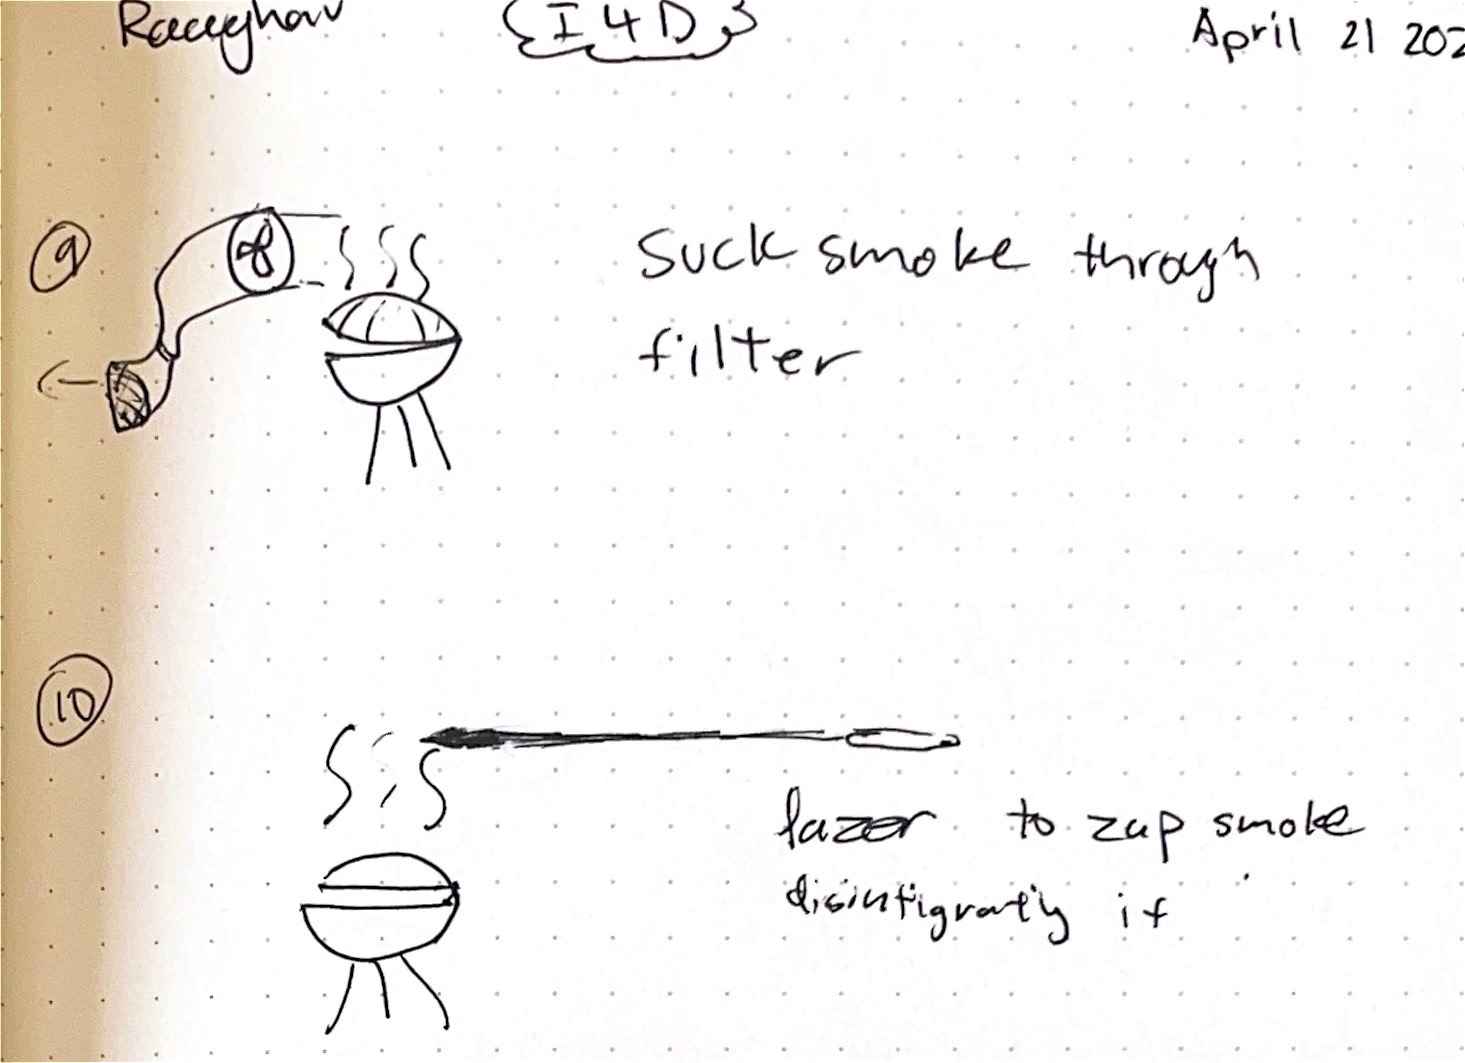 {I4D}
April 21 202
9
Suck smoke through
filter
10
lazer to zap smoke
disintigratig it